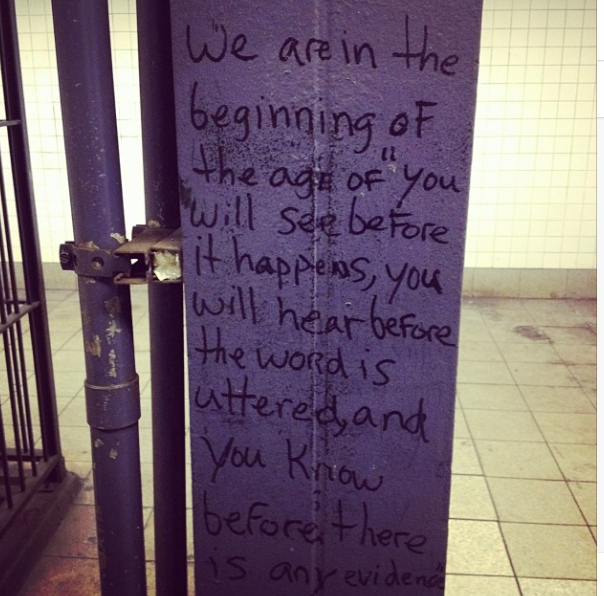 We are in the
beginning of
the age of "you
will see before
it happens, you
will hear before
the word is
uttered, and
you know
before there
is any evidence"